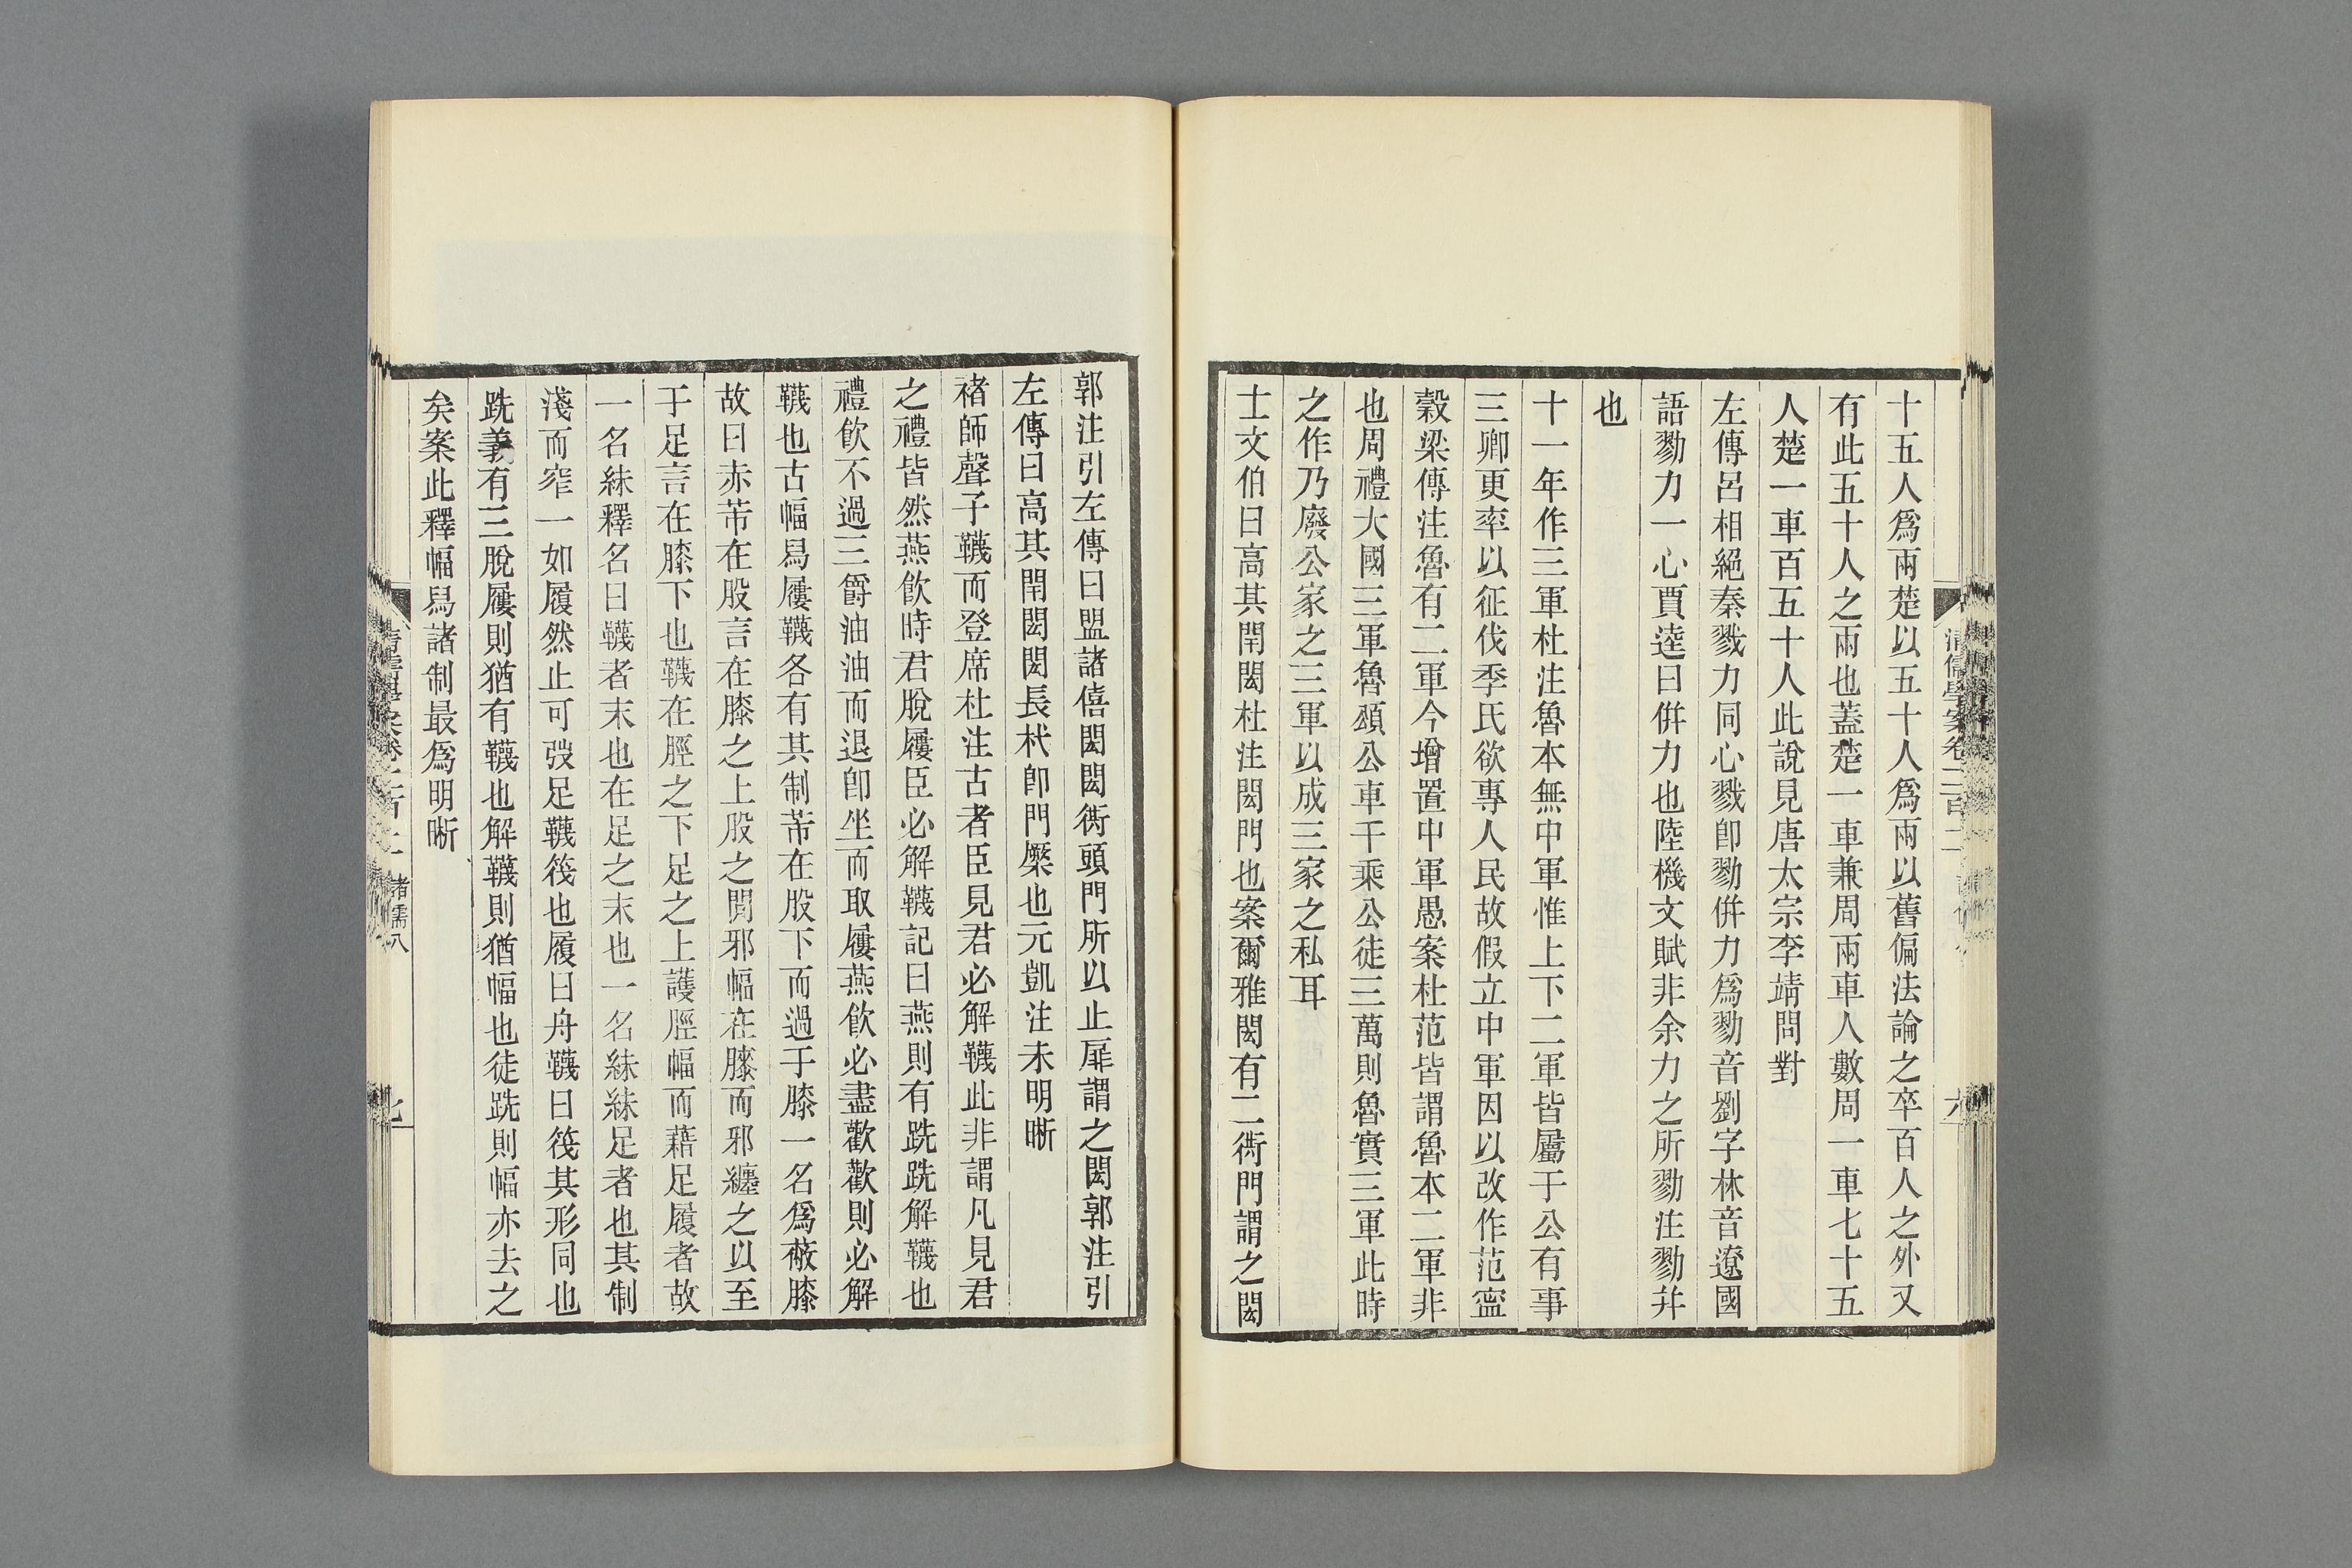 十五人爲兩楚以五十人爲兩以舊偏法論之卒百人之外又
有此五十人之兩也蓋楚一車兼周兩車人數周一車七十五
人楚一車百五十人此說見唐太宗李靖問對
左傳呂相絕秦戮力同心戮卽勠力倂力爲勠音劉字林音遼國
語勠力一心賈逵曰倂力也陸機文賦非余力之所勠注勠幷
也
十一年作三軍杜注魯本無中軍惟上下二軍皆屬于公有事
三卿更率以征伐季氏欲專人民故假立中軍因以改作范寍
穀梁傳注魯有二軍今增置中軍愚案杜范皆謂魯本二軍非
也周禮大國三軍魯頌公車千乘公徒三萬則魯實三軍此時
之作乃廢公家之三軍以成三家之私耳
士文伯曰高其閈閎杜注閎門也案爾雅閎有二衖門謂之閎
清儒學案卷二百二
六
郭注引左傳曰盟諸僖閎閎衖頭門所以止扉謂之閎郭注引
左傳曰高其閈閎閎長杙卽門橜也元凱注未明晰
褚師聲子韤而登席杜注古者臣見君必解韤此非謂凡見君
之禮皆然燕飮時君脫屨臣必解韤記曰燕則有跣跣解韤也
禮飮不過三爵油油而退卽坐而取屨燕飮必盡歡歡則必解
韤也古幅舄屨韤各有其制芾在股下而過于膝一名爲蔽膝
故曰赤芾在股言在膝之上股之閒邪幅在膝而邪纏之以至
于足言在膝下也韤在脛之下足之上護脛幅而藉足履者故
一名絑釋名曰韤者末也在足之末也一名絑絑足者也其制
淺而窄一如履然止可弢足韤筏也履曰舟韤曰筏其形同也
跣義有三脫屨則猶有韤也解韤則猶幅也徒跣則幅亦去之
矣案此釋幅舄諸制最爲明晰
諸儒八
七